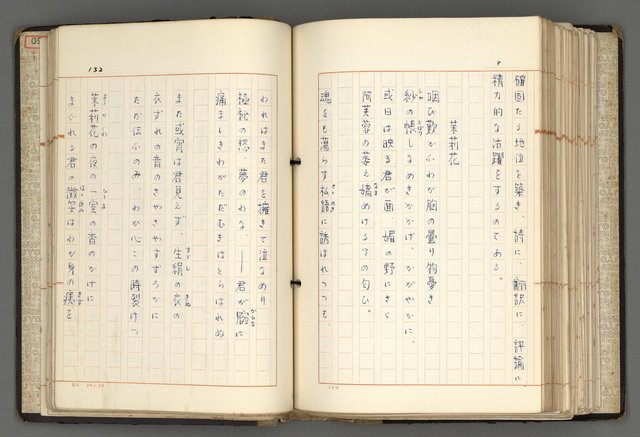 確固たる地位を築き、詩に、翻訳に、評論に
精力的な活躍をするのである。
茉莉花
咽び歎かふわが胸の曇り物憂き
紗の帳しなめきかかげ、かがやかに、
或日は映る君が面、媚の野にさく
阿芙蓉の萎え嬌めけるその匂ひ。
魂をも蕩らす私語に誘はれつつも、
132
われはまた君を擁きて泣なめり
極秘の愁、夢のわな、――君が腕に
痛ましきわがただむきはとらはれぬ
また或宵は君見えず、生絹の衣の
衣ずれの音のさやさやすずろかに
ただ伝ふのみ、わが心この時裂けつ
茉莉花の夜の一室の香のかげに
まじれる君の微笑はわが身の痍を